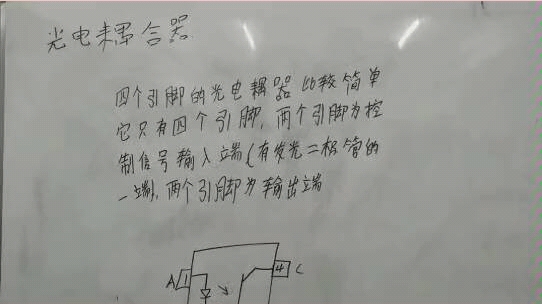 光电耦合器
四个引脚的光电耦器比较简单
它只有四个引脚，两个引脚为控
制信号输入端（有发光二极管的
一端，两个引脚为输出端
A 1 4 C